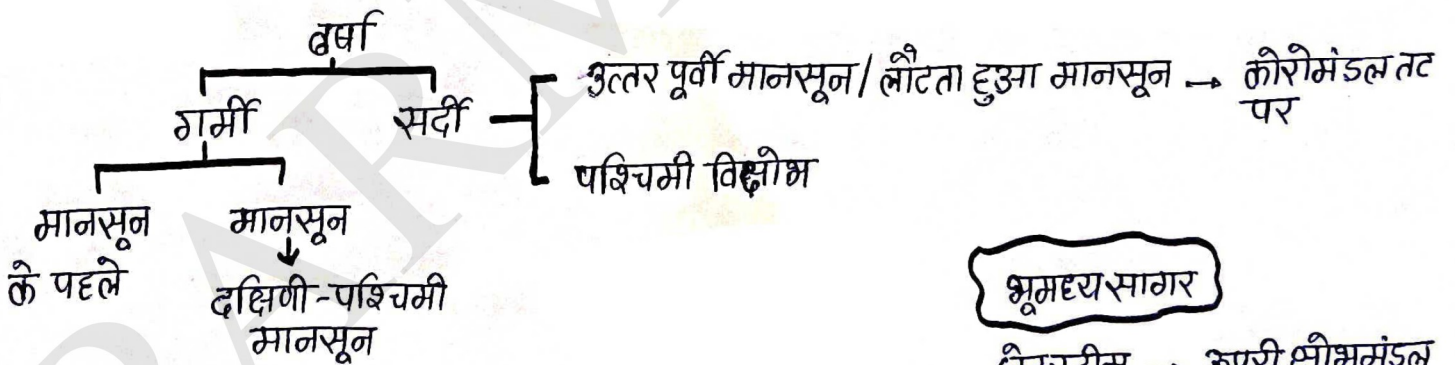 वर्षा
गर्मी सर्दी
उत्तर पूर्वी मानसून / लौटता हुआ मानसून → कोरोमंडल तट
पर
पश्चिमी विक्षोभ
मानसून मानसून
के पहले
दक्षिणी-पश्चिमी
मानसून
भूमध्य सागर
→ ऊपरी क्षोभमंडल